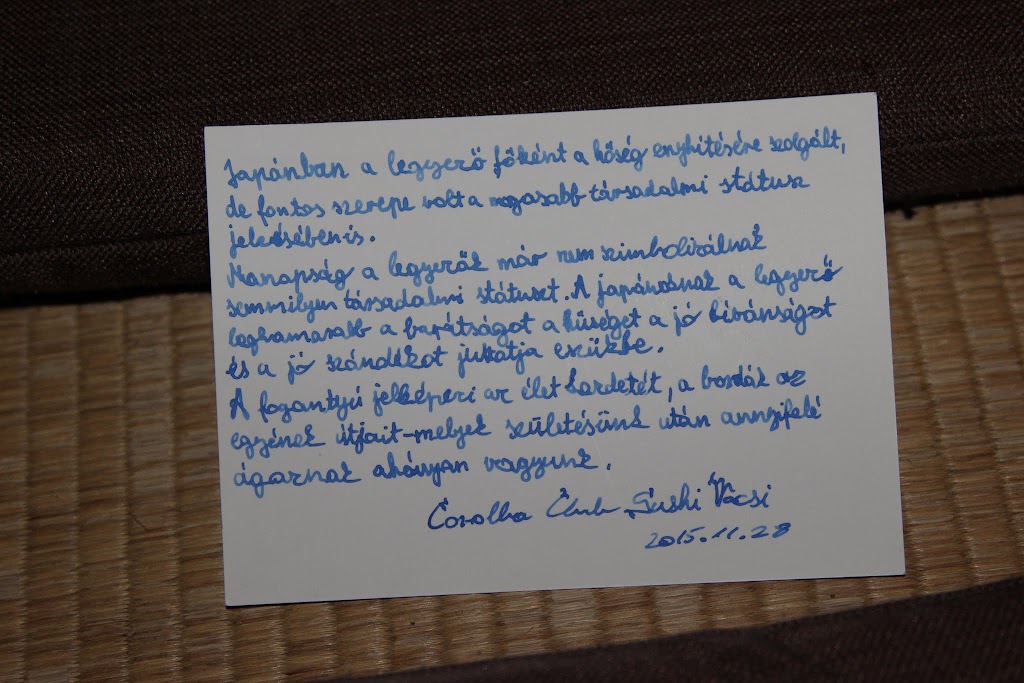 Japánban a legyező főként a hőség enyhítésére szolgált,
de fontos szerepe volt a magasabb társadalmi státusz
jelzésében is.
Manapság a legyezők már nem szimbolizálnak
semmilyen társadalmi státuszt. A japánoknak a legyező
leghamarabb a barátságot a hűséget a jó kívánságot
és a jó szándékot juttatja eszükbe.
A fogantyú jelképezi az élet kezdetét, a bordák az
egyének útjait-melyek születésünk után annyifelé
ágaznak ahányan vagyunk.
Corolla Club Sushi Vácsi
2015.11.28